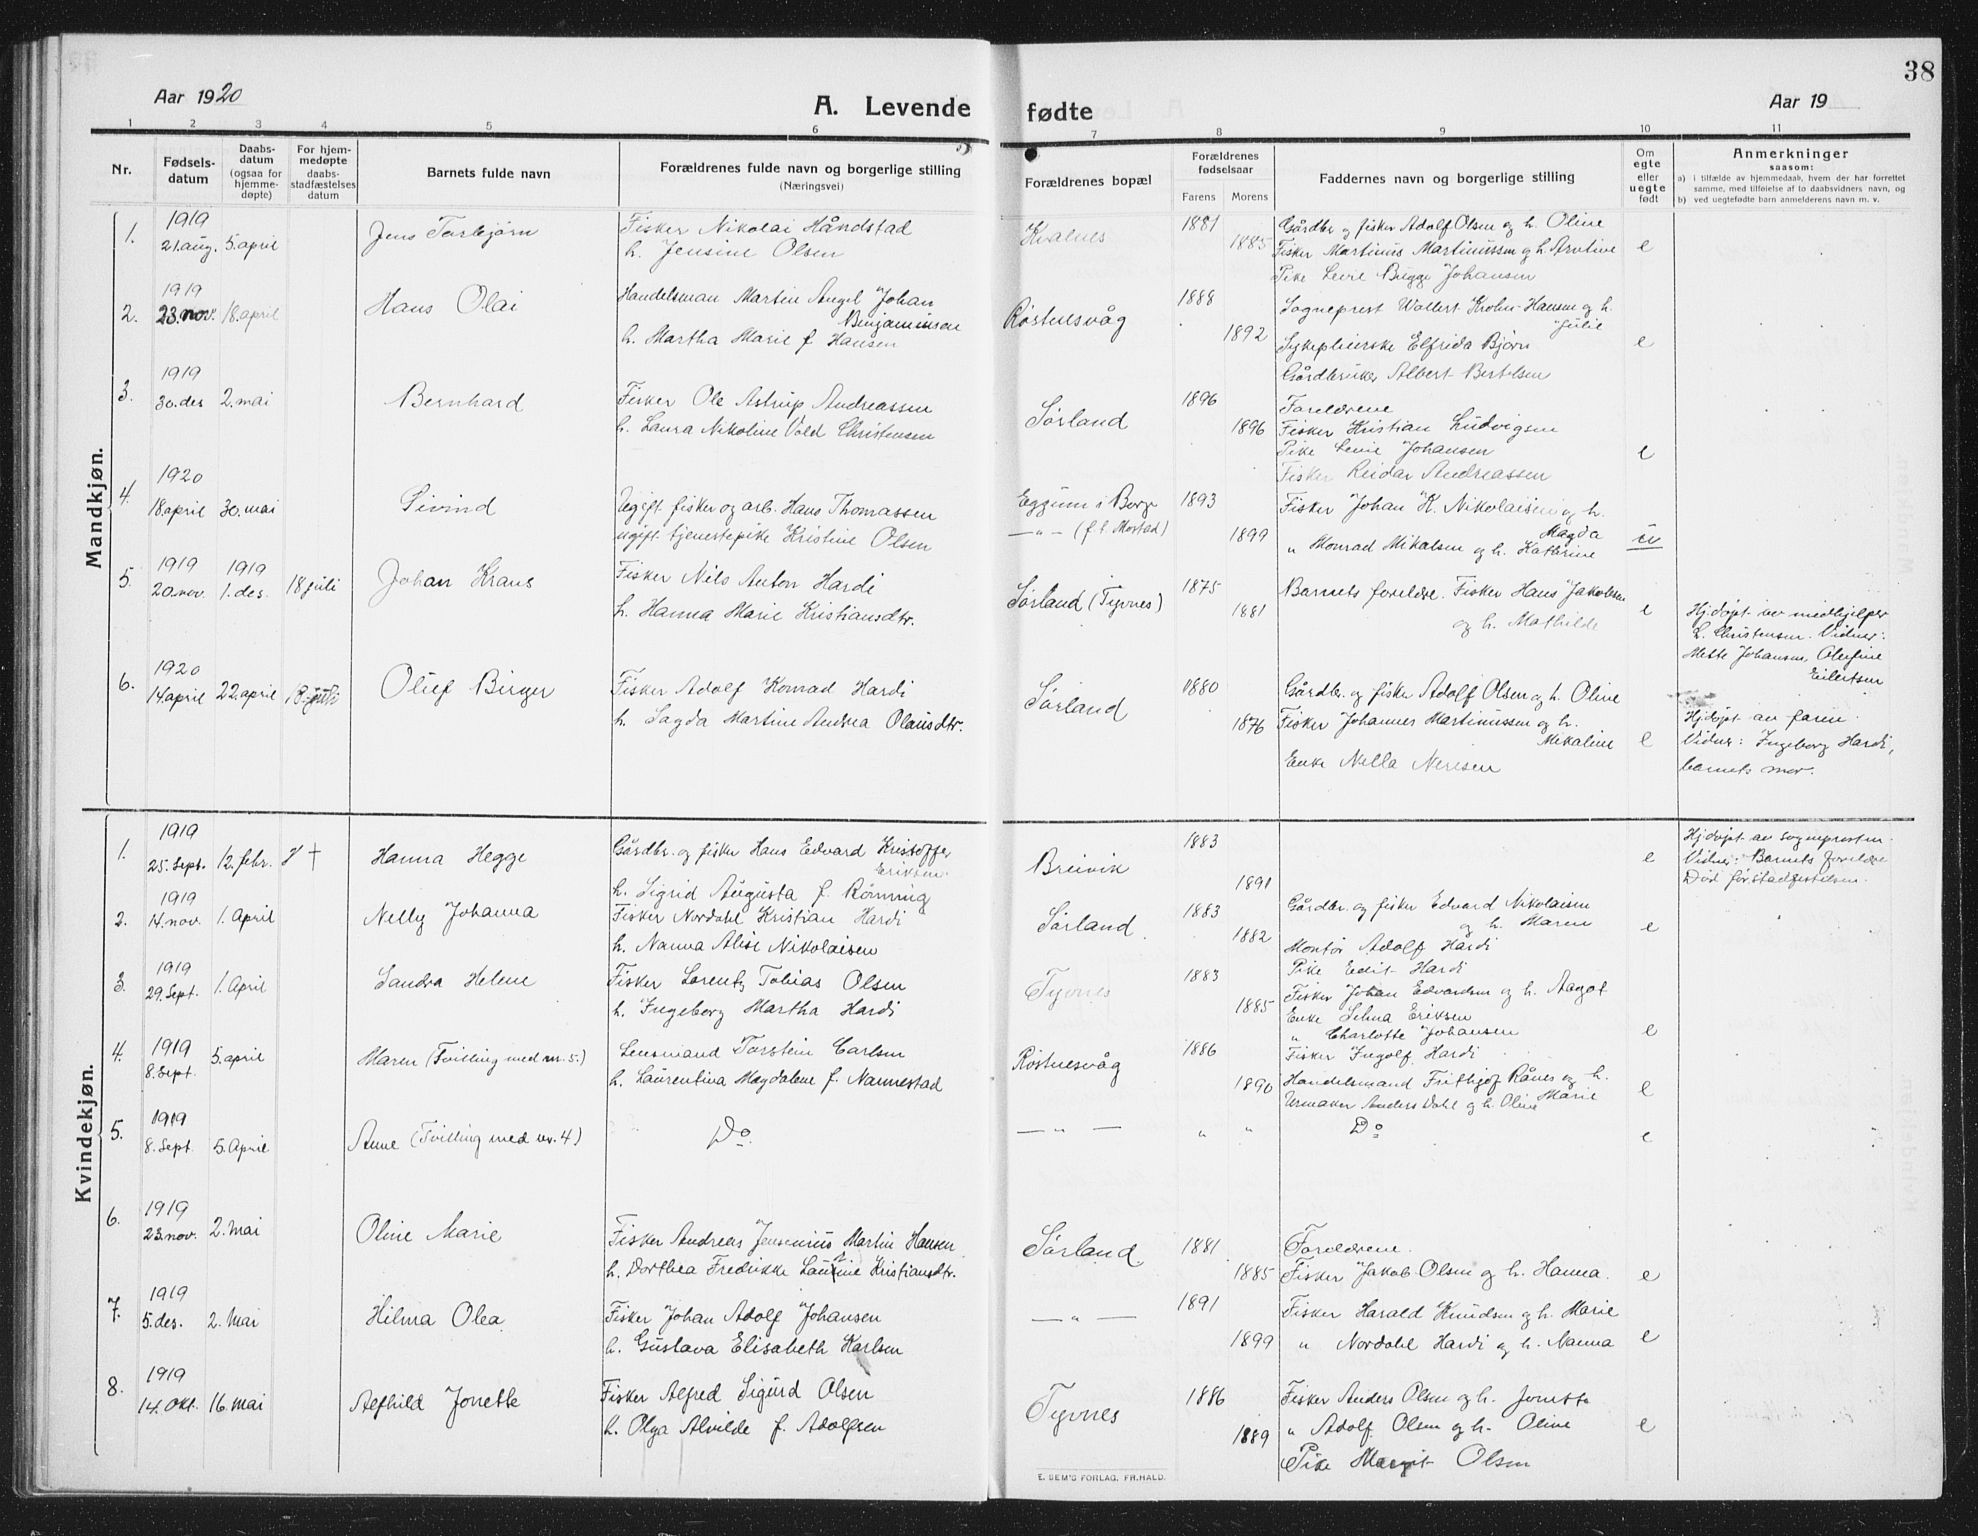 38
Aar 1920
A. Levende fødte
Aar 19
1 2 3 4 5 6 7 8 9 10 11
Nr.
Fødsels-
datum
Daabs-
datum
(ogsaa for
hjemme-
døpte)
For hjem-
medøpte
daabs-
stadfæstelses
datum
Barnets fulde navn
Forældrenes fulde navn og borgerlige stilling
(Næringsvei)
Forældrenes bopæl
Forældrenes
fødselsaar
Farens Morens
Faddernes navn og borgerlige stilling
Om
egte
eller
uegte
født
Anmerkninger
saasom:
a) i tilfælde av hjemmedaab, hvem der har forrettet
samme, med tilføielse af to daabsvidners navn, og
b) ved uegtefødte barn anmelderens navn m. v.
Mandkjøn.
1. 1919
21. aug. 5. april
Jens Torbjørn
Fisker Nikolai Håndstad
h. Jensine Olsen
Kvalnes
1881
1885
Gårdbr. og fisker Adolf Olsen og h. Oline
Fisker Martinus Martinussen og h. Arntine
Pike Levie Bugge Johansen
e
2. 1919
23. nov. 18. april
Hans Olai
Handelsman Martin Angel Johan
Benjaminsen
h. Martha Marie f. Hansen
Røstnesvåg
1888
1892
Sogneprest Wollert Krohn-Hansen og h.
Julie
Sykepleierske Elfrida Bjørn
Gårdbruker Albert Bertelsen
e
3. 1919
30. des 2. mai
Bernhard
Fisker Ole Astrup Andreassen
h. Laura Nikoline Vold Christensen
Sørland
1896
1896
Foreldrene
Fisker Kristian Ludvigsen
Pike Levie Johansen
Fisker Reidar Andreassen
e
4. 1920
18. april 30. mai
Eivind
Ugift fisker og arb. Hans Thomassen
ugift tjenestepike Kristine Olsen
Eggum i Borge
— " — (f. t. Mostad)
1893
1899
Fisker Johan K. Nikolaisen og h.
Magda
" Monrad Mikalsen og h. Kathrine
5. 1919 1919
20. nov. 1. des. 18 juli
Johan Kraus
Fisker Nils Anton Hardi
h. Hanna Marie Kristiansdtr.
Sørland (Tyvnes)
1875
1881
Barnets foreldre. Fisker Hans Jakobsen
og h. Mathilde
e
Hj.døpt av medhjelper
L. Christensen. Vidner:
Mette Johansen, Olufine
Eilertsen
6. 1920
14. april 22. april 18. juli
Oluf Birger
Fisker Adolf Konrad Hardi
h. Sagda Martine Andrea Olausdtr.
Sørland
1880
1876
Gårdbr. og fisker Adolf Olsen og h. Oline
Fisker Johannes Martinussen og h.
Mikaline
Enke Nella Neresen
e
Hj.døpt av faren.
Vidner: Ingeborg Hardi,
barnets mor.
Kvindekjøn.
1. 1919
25. sept. 12. febr. †
Hanna Hegge
Gårdbr. og fisker Hans Edvard Kristoffer
Eriksen.
h. Sigrid Augusta f. Rønning
Breivik
1883
1891
e
Hj.døpt av sogneprosten.
Vidner: Barnets foreldre
Død før stadfestelsen.
2. 1919
14. nov. 1. April
Nelly Johanna
Fisker Nordahl Kristian Hardi
h. Nanna Alise Nikolaisen
Sørland
1883
1882
Gårdbr. og fisker Edvard Nikolaisen
og h. Maren
Montør Adolf Hardi
Pike Edit Hardi
e
3. 1919
29. sept. 1. April
Sandra Helene
Fisker Lorentz Tobias Olsen
h. Ingeborg Martha Hardi
Tyvnes
1883
1885
Fisker Johan Edvardsen og h. Aagot
Enke Selma Eriksen
" Charlotte Johansen
Fisker Ingolf Hardi
e
4. 1919
8. sept. 5. april
Maren (Tvilling med nr. 5.)
Lensmand Torstein Carlsen
h. Laurentina Magdalene f. Nannestad
Røstnesvåg
1886
1890
Handelsmand Frithjof Rånes og h.
Marie
Urmaker Anders Dahl og h. Oline
e
5. 1919
8. sept 5. April
Anne (Tvilling med nr. 4)
Do
— " —
" "
Do
e
6. 1919
23. nov. 2. mai
Oline Marie
Fisker Andreas Jensenius Martin Hansen
h. Dorthea Fredrikke Laurine Kristiansdtr.
Sørland
1881
1885
Foreldrene.
Fisker Jakob Olsen og h. Hanna.
e
7. 1919
5. des. 2. Mai
Hilma Olea
Fisker Johan Adolf Johansen
h. Gustava Elisabeth Karlsen
— " —
1891
1899
Fisker Harald Knudsen og h. Marie
" Nordahl Hardi og h. Nanna
e
8. 1919
14. okt. 16. mai
Alfhild Jonette
Fisker Alfred Sigurd Olsen
h. Olga Alvilde f. Adolfsen
Tyvnes
1886
1889
Fisker Anders Olsen og h. Jonette
" Adolf Olsen og h. Oline
Pike Margit Olsen
e
E. SEM'S FORLAG, FR.HALD.